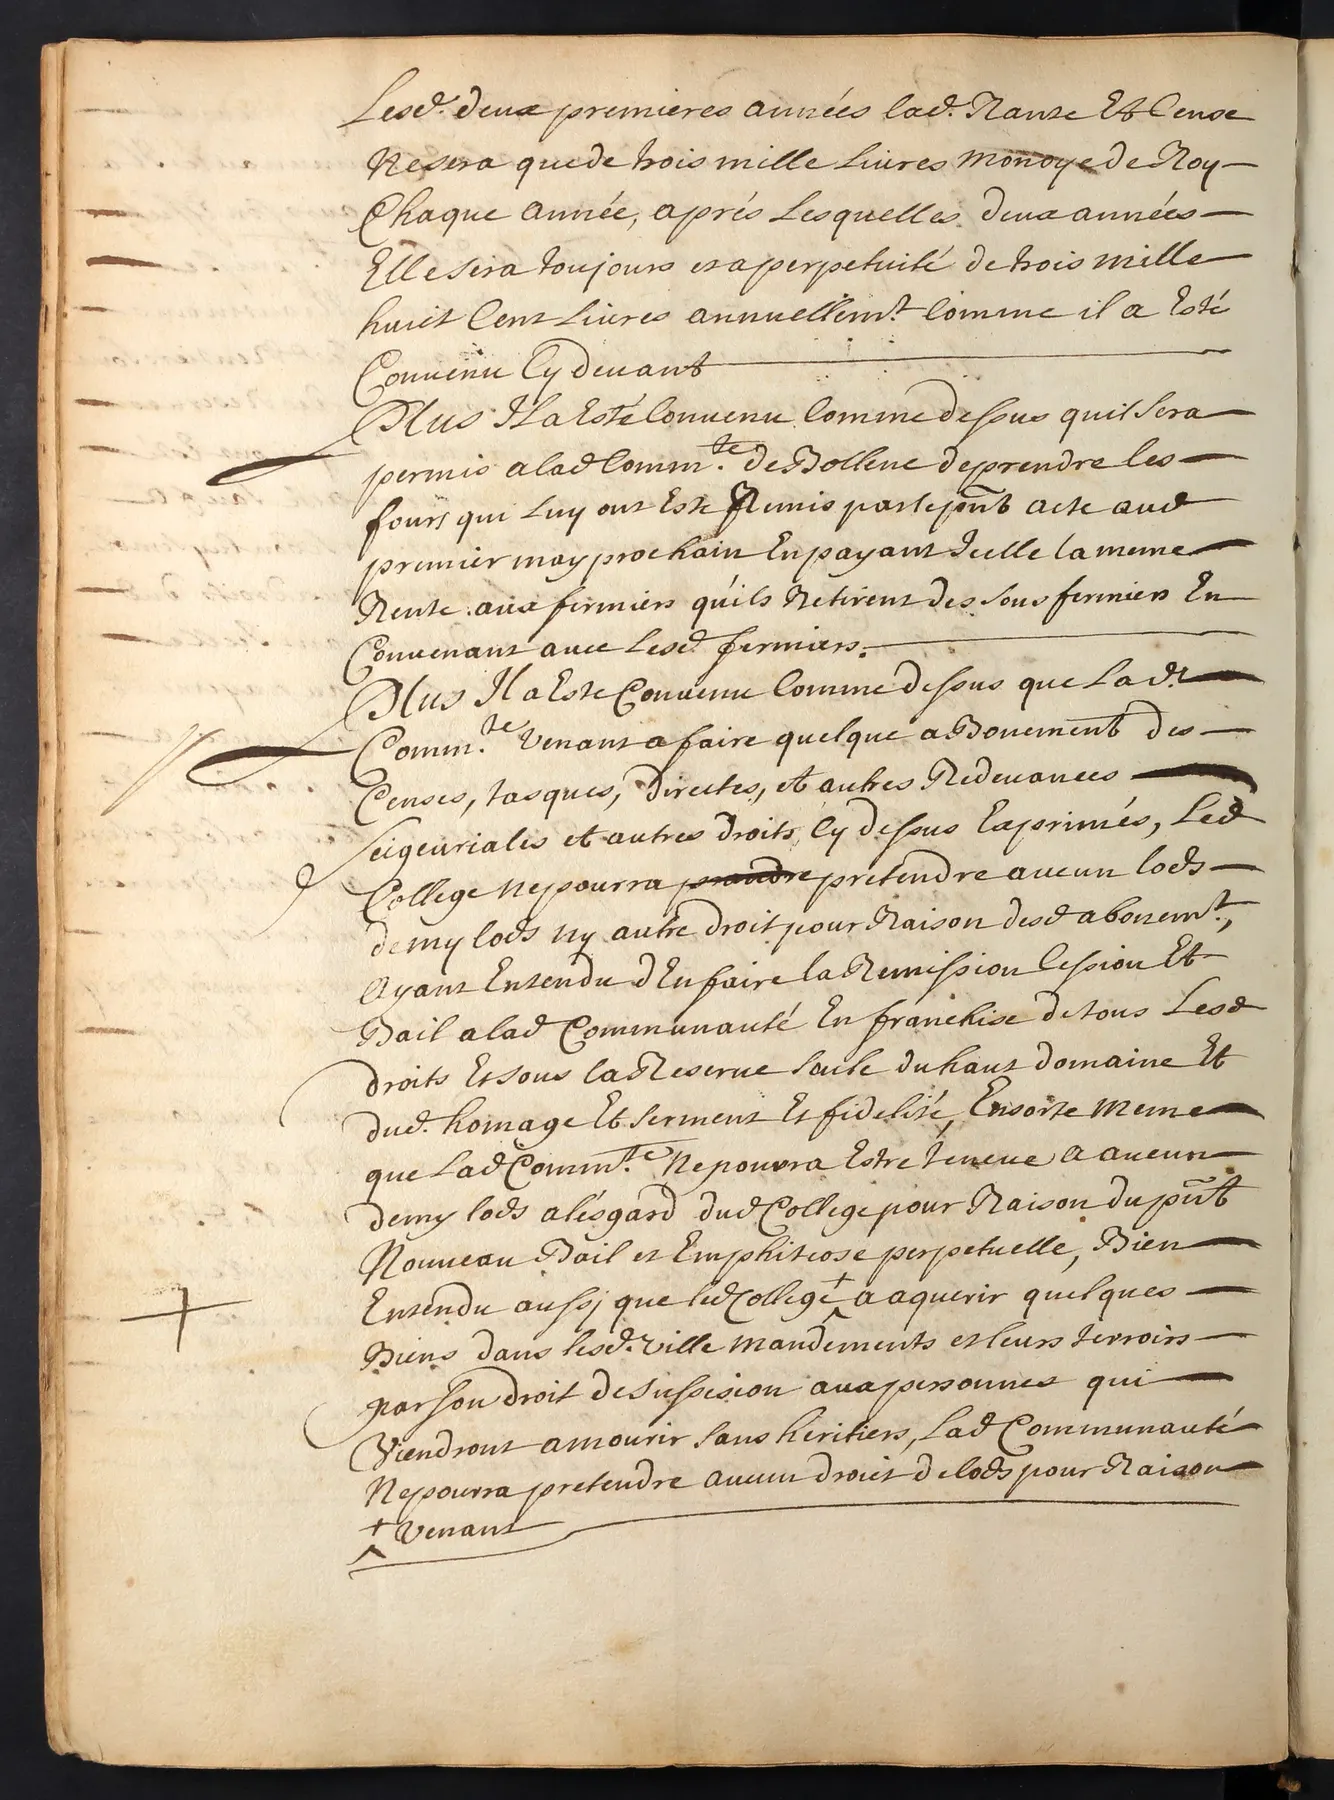 Lesd. deux premieres années lad. Rante Et Cense
Ne sera que de trois mille Livres monoye de Roy
Chaque année, aprés Lesquelles deux années
Elle sera toujours et a perpetuité de trois mille
huict Cent Livres annuellemt. Comme il a Esté
Convenu Cy devant
Plus Il a Esté Convenu Comme dessus quil sera
permis a lad Commte. de Bollene de prendre les
fours qui Luy ont Esté Remis par le pnt acte aud
premier may prochain En payant Icelle la meme
Rente aux fermiers qu'ils Retirent des sous fermiers En
Convenant avec Lesd. fermiers.
Plus Il a Este Convenu Comme dessus que Lad.
Commte. Venant a faire quelque abbonement des
Censes, tasques, directes, et autres Redevances
seigeuriales et autres droits Cy dessus Exprimés, Led
College ne pourra prandre pretendre aucun lods
demy lods ny autre droit pour Raison desd abonemt.,
Ayant Entendu d'En faire la Remission Cession Et
Bail a lad Communauté En franchise de tous Lesd
droits Et sous la Reserve seule du haut domaine Et
dud. homage Et serment Et fidelité, Ensorte meme
que Lad Commte. Ne pouvra Estre teneue a aucun
demy lods a l'ésgard dud College pour Raison du pnt
Nouveau Bail et Emphiteose perpetuelle, Bien
Entendu aussj que led College + a aquerir quelques
Biens dans lesd. Ville mandements et leurs terroirs
par son droit de sussesion aux personnes qui
Viendront a mourir sans héritiers, Lad Communauté
Ne pourra pretendre aucun droict de lods pour Raison
+ Venant